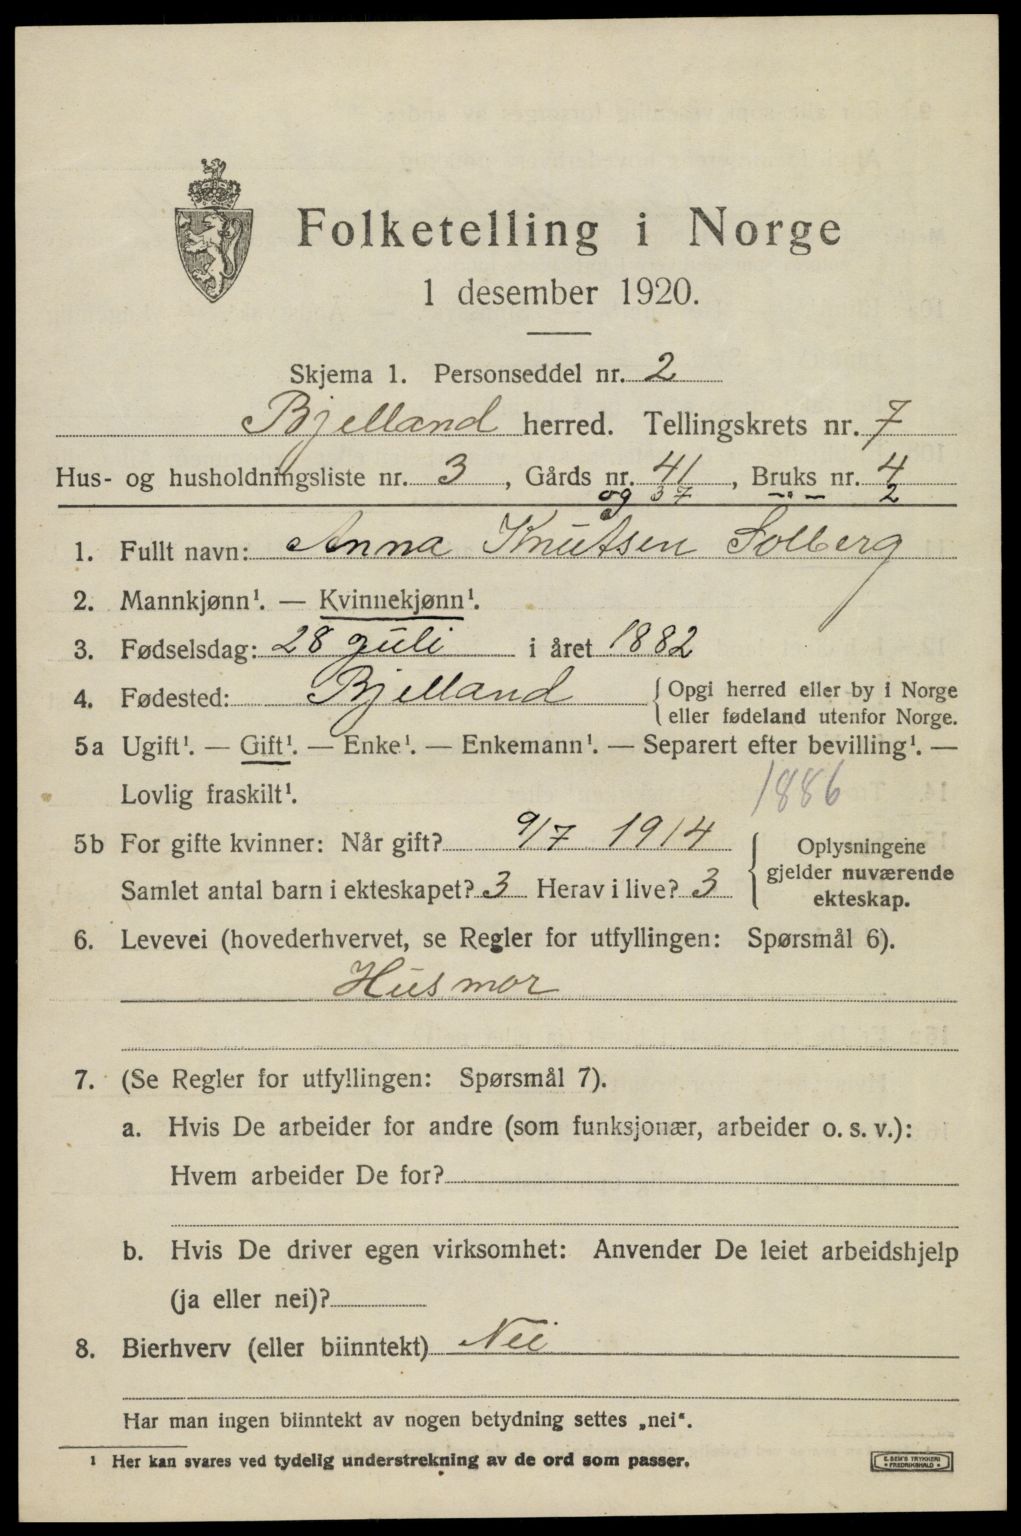 Folketelling i Norge
1 desember 1920.
Skjema 1. Personseddel nr. 2
Bjelland herred. Tellingskrets nr. 7
Hus- og husholdningsliste nr. 3, Gårds nr. 41, Bruks nr. 4
og 37 -"- 2
1. Fullt navn: Anna Knutsen Solberg
2. Mannkjønn¹. — Kvinnekjønn¹.
3. Fødselsdag: 28 juli i året 1882
4. Fødested: Bjelland {Opgi herred eller by i Norge
eller fødeland utenfor Norge.
5a Ugift¹. — Gift¹. — Enke¹. — Enkemann¹. — Separert efter bevilling¹. —
Lovlig fraskilt¹. 1886
5b For gifte kvinner: Når gift? 9/7 1914
Samlet antal barn i ekteskapet? 3 Herav i live? 3
{Oplysningene
gjelder nuværende
ekteskap.
6. Levevei (hovederhvervet, se Regler for utfyllingen: Spørsmål 6).
Husmor
7. (Se Regler for utfyllingen: Spørsmål 7).
a. Hvis De arbeider for andre (som funksjonær, arbeider o. s. v.):
Hvem arbeider De for?
b. Hvis De driver egen virksomhet: Anvender De leiet arbeidshjelp
(ja eller nei)?
8. Bierhverv (eller biinntekt) Nei
Har man ingen biinntekt av nogen betydning settes „nei“.
¹ Her kan svares ved tydelig understrekning av de ord som passer.
E. SEM'S TRYKKERI
FREDRIKSHALD